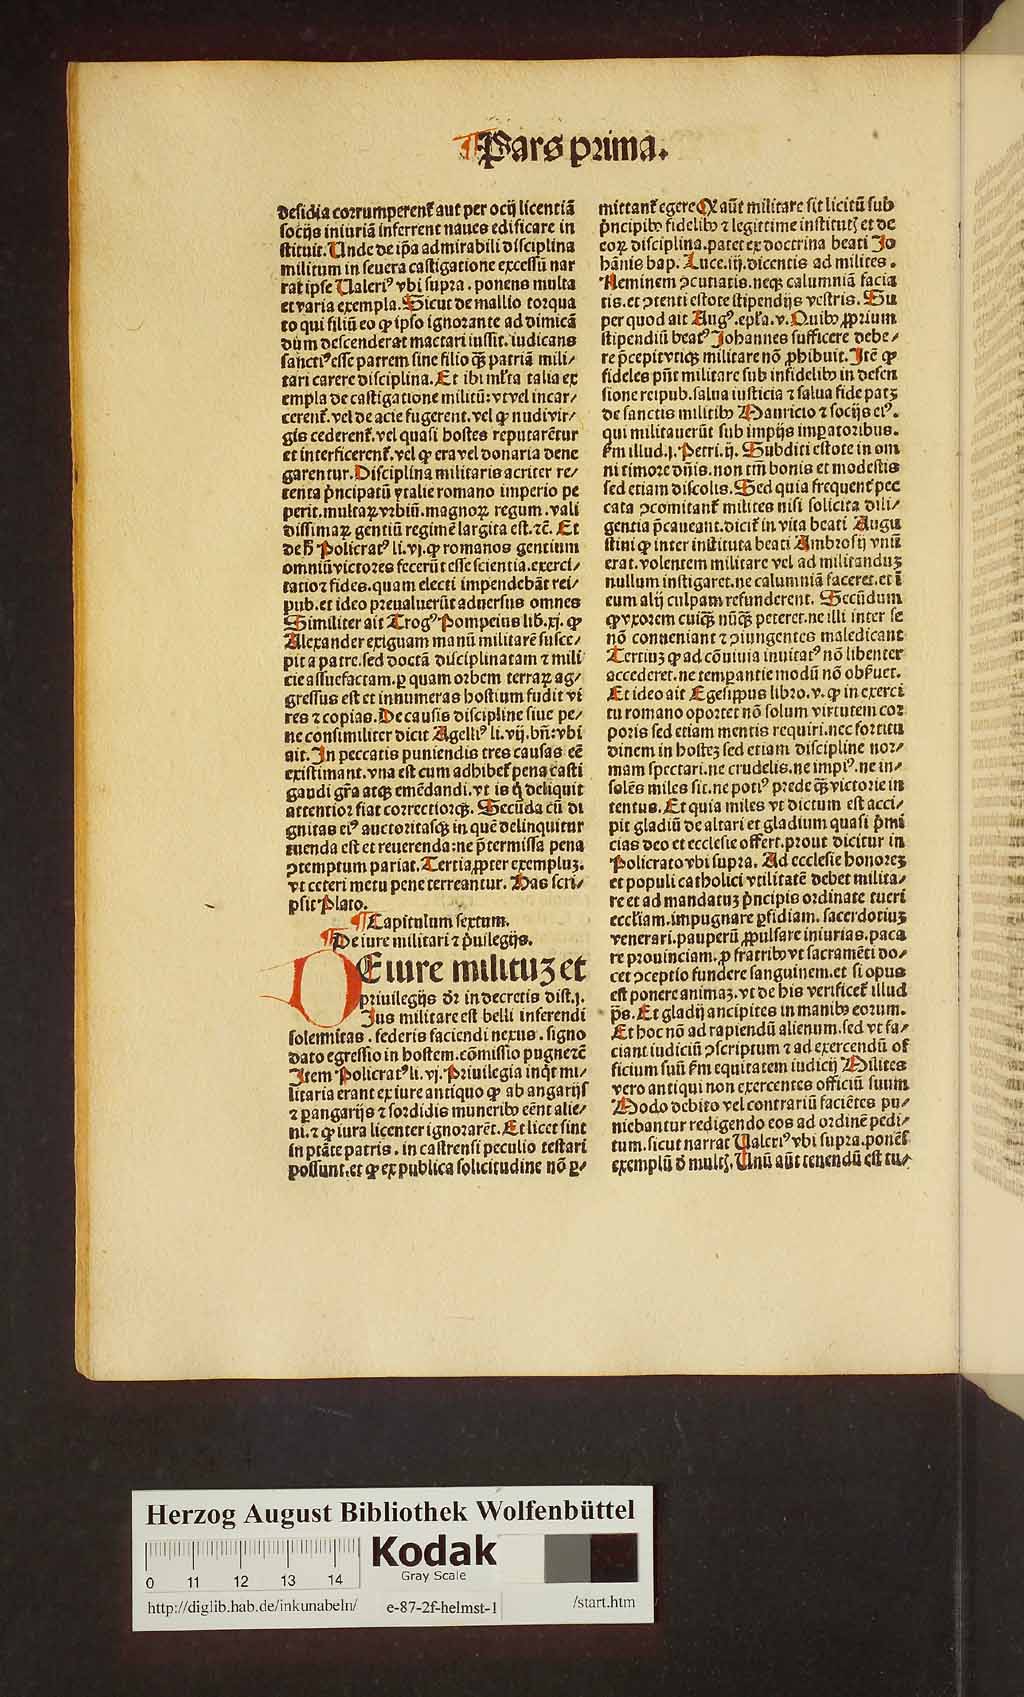 ¶Pars prima.
desidia corrumperent᷑ aut per ocij licentiā
socijs iniuriā inferrent naues edificare in
stituit. Unde de ip̄a admirabili disciplina
militum in seuera castigatione excessū nar
rat ipse Ualeriꝰ vbi supra. ponens multa
et varia exempla. Sicut de mallio torqua
to qui filiū eo ꝙ ipso ignorante ad dimicā
dum descenderat mactari iussit. iudicans
sanctiꝰ esse patrem sine filio qꝫ̄ patriā mili⸗
tari carere disciplina. Et ibi ml̓ta talia ex
empla de castigatione militū: vt vel incar⸗
cerent᷑. vel de acie fugerent. vel ꝙ nudi vir⸗
gis cederent᷑. vel quasi hostes reputarētur
et interficerent᷑. vel ꝙ era vel donaria dene
garentur. Disciplina militaris acriter re⸗
tenta p̓ncipatū ytalie romano imperio pe
perit. multaꝝ vrbiū. magnoꝝ regum. vali
dissimaꝝ gentiū regimē largita est. ⁊c̄. Et
de h̄ Policratꝰ li. vj. ꝙ romanos gentium
omniū victores fecerūt esse scientia. exerci⸗
tatio ⁊ fides. quam electi impendebāt rei⸗
pub. et ideo preualuerūt aduersus omnes
Similiter ait Trogꝰ Pompeius lib. xj. ꝙ
Alexander exiguam manū militarē susce⸗
pit a patre. sed doctā disciplinatam ⁊ mili
cie assuefactam. ꝑ quam orbem terraꝝ ag⸗
gressus est et innumeras hostium fudit vi
res ⁊ copias. De causis discipline siue pe⸗
ne consimiliter dicit Agelliꝰ li. vij. bn̄: vbi
ait. In peccatis puniendis tres causas eē
existimant. vna est cum adhibet᷑ pena casti
gandi gr̄a atqꝫ emēdandi. vt is q̓ deliquit
attentior fiat correctiorqꝫ. Secūda cū di
gnitas eiꝰ auctoritasqꝫ in quē delinquitur
tuenda est et reuerenda: ne p̄termissa pena
ꝯtemptum pariat. Tertia ꝓpter exempluꝫ.
vt ceteri metu pene terreantur. Has scri⸗
psit Plato.
¶Capitulum sextum.
¶De iure militari ⁊ p̓uilegijs.
DE iure milituꝫ et
priuilegijs dr̄ in decretis dist. j.
Jus militare est belli inferendi
solemnitas. federis faciendi nexus. signo
dato egressio in hostem. cōmissio pugne ⁊c̄
Item Policratꝰ li. vj. Priuilegia inq̓t mi⸗
litaria erant ex iure antiquo ꝙ ab angarijs
⁊ ꝑangarijs ⁊ sordidis muneribꝰ eēnt alie⸗
ni. ⁊ ꝙ iura licenter ignorarēt. Et licet sint
in ptāte patris. in castrensi peculio testari
possunt. et ꝙ ex publica solicitudine nō ꝑ⸗
mittant᷑ egere Q aūt militare sit licitū sub
p̓ncipibꝰ fidelibꝰ ⁊ legittime institutꝭ et de
eoꝝ disciplina. patet ex doctrina beati Jo
hānis bap. Luce. iij. dicentis ad milites.
Neminem ꝯcutiatis. neqꝫ calumniā facia
tis. et ꝯtenti estote stipendijs vestris. Su
per quod ait Augꝰ. epl̄a. v. Quibꝰ ꝓprium
stipendiū beatꝰ Johannes sufficere debe⸗
re p̄cepit vtiqꝫ militare nō ꝓhibuit. Itē ꝙ
fideles pn̄t militare sub infidelibꝰ in defen
sione reipub. salua iusticia ⁊ salua fide patꝫ
de sanctis militibꝰ Mauricio ⁊ socijs eiꝰ.
qui militauerūt sub impijs imꝑatoribus.
k̄m illud. j. Petri. ij. Subditi estote in om
ni timore dn̄is. non tm̄ bonis et modestis
sed etiam discolis. Sed quia frequent᷑ pec
cata ꝯcomitant᷑ milites nisi solicita dili⸗
gentia p̄caueant. dicit᷑ in vita beati Augu
stini ꝙ inter instituta beati Ambrosij vnū
erat. volentem militare vel ad militanduꝫ
nullum instigaret. ne calumniā faceret. et ī
eum alij culpam refunderent. Secūdum
ꝙ vxorem cuiqꝫ nūqꝫ peteret. ne illi inter se
nō conueniant ⁊ ꝯiungentes maledicant
Tertiuꝫ ꝙ ad cōuiuia inuitatꝰ nō libenter
accederet. ne temꝑantie modū nō obẜuet.
Et ideo ait Egesippus libro. v. ꝙ in exerci
tu romano oportet nō solum virtutem cor
poris sed etiam mentis requiri. nec fortitu
dinem in hosteꝫ sed etiam discipline nor⸗
mam spectari. ne crudelis. ne impiꝰ. ne in⸗
solēs miles sit. ne potiꝰ prede qꝫ̄ victorie in
tentus. Et quia miles vt dictum est acci⸗
pit gladiū de altari et gladium quasi p̓mi
cias deo et ecclesie offert. prout dicitur in
Policrato vbi supra. Ad ecclesie honoreꝫ
et populi catholici vtilitatē debet milita⸗
re et ad mandatuꝫ p̓ncipis ordinate tueri
eccl̄iam. impugnare ꝑfidiam. sacerdotiuꝫ
venerari. pauperū ꝓpulsare iniurias. paca
re prouinciam. ꝓ fratribꝰ vt sacramēti do⸗
cet ꝯceptio fundere sanguinem. et si opus
est ponere animaꝫ. vt de his verificet᷑ illud
p̄s. Et gladij ancipites in manibꝰ eorum.
Et hoc nō ad rapiendū alienum. sed vt fa⸗
ciant iudiciū ꝯscriptum ⁊ ad exercendū of
ficium suū k̄m equitatem iudicij Milites
vero antiqui non exercentes officiū suum
Modo debito vel contrariū faciētes pu⸗
niebantur redigendo eos ad ordinē pedi⸗
tum. sicut narrat Ualeriꝰ vbi supra. ponēs
exemplū d̓ multꝭ. Unū aūt tenendū est tu⸗
Herzog August Bibliothek Wolfenbüttel
0 11 12 13 14
Kodak
Gray Scale
http://diglib.hab.de/inkunabeln/ e-87-2f-helmst-1 /start.htm